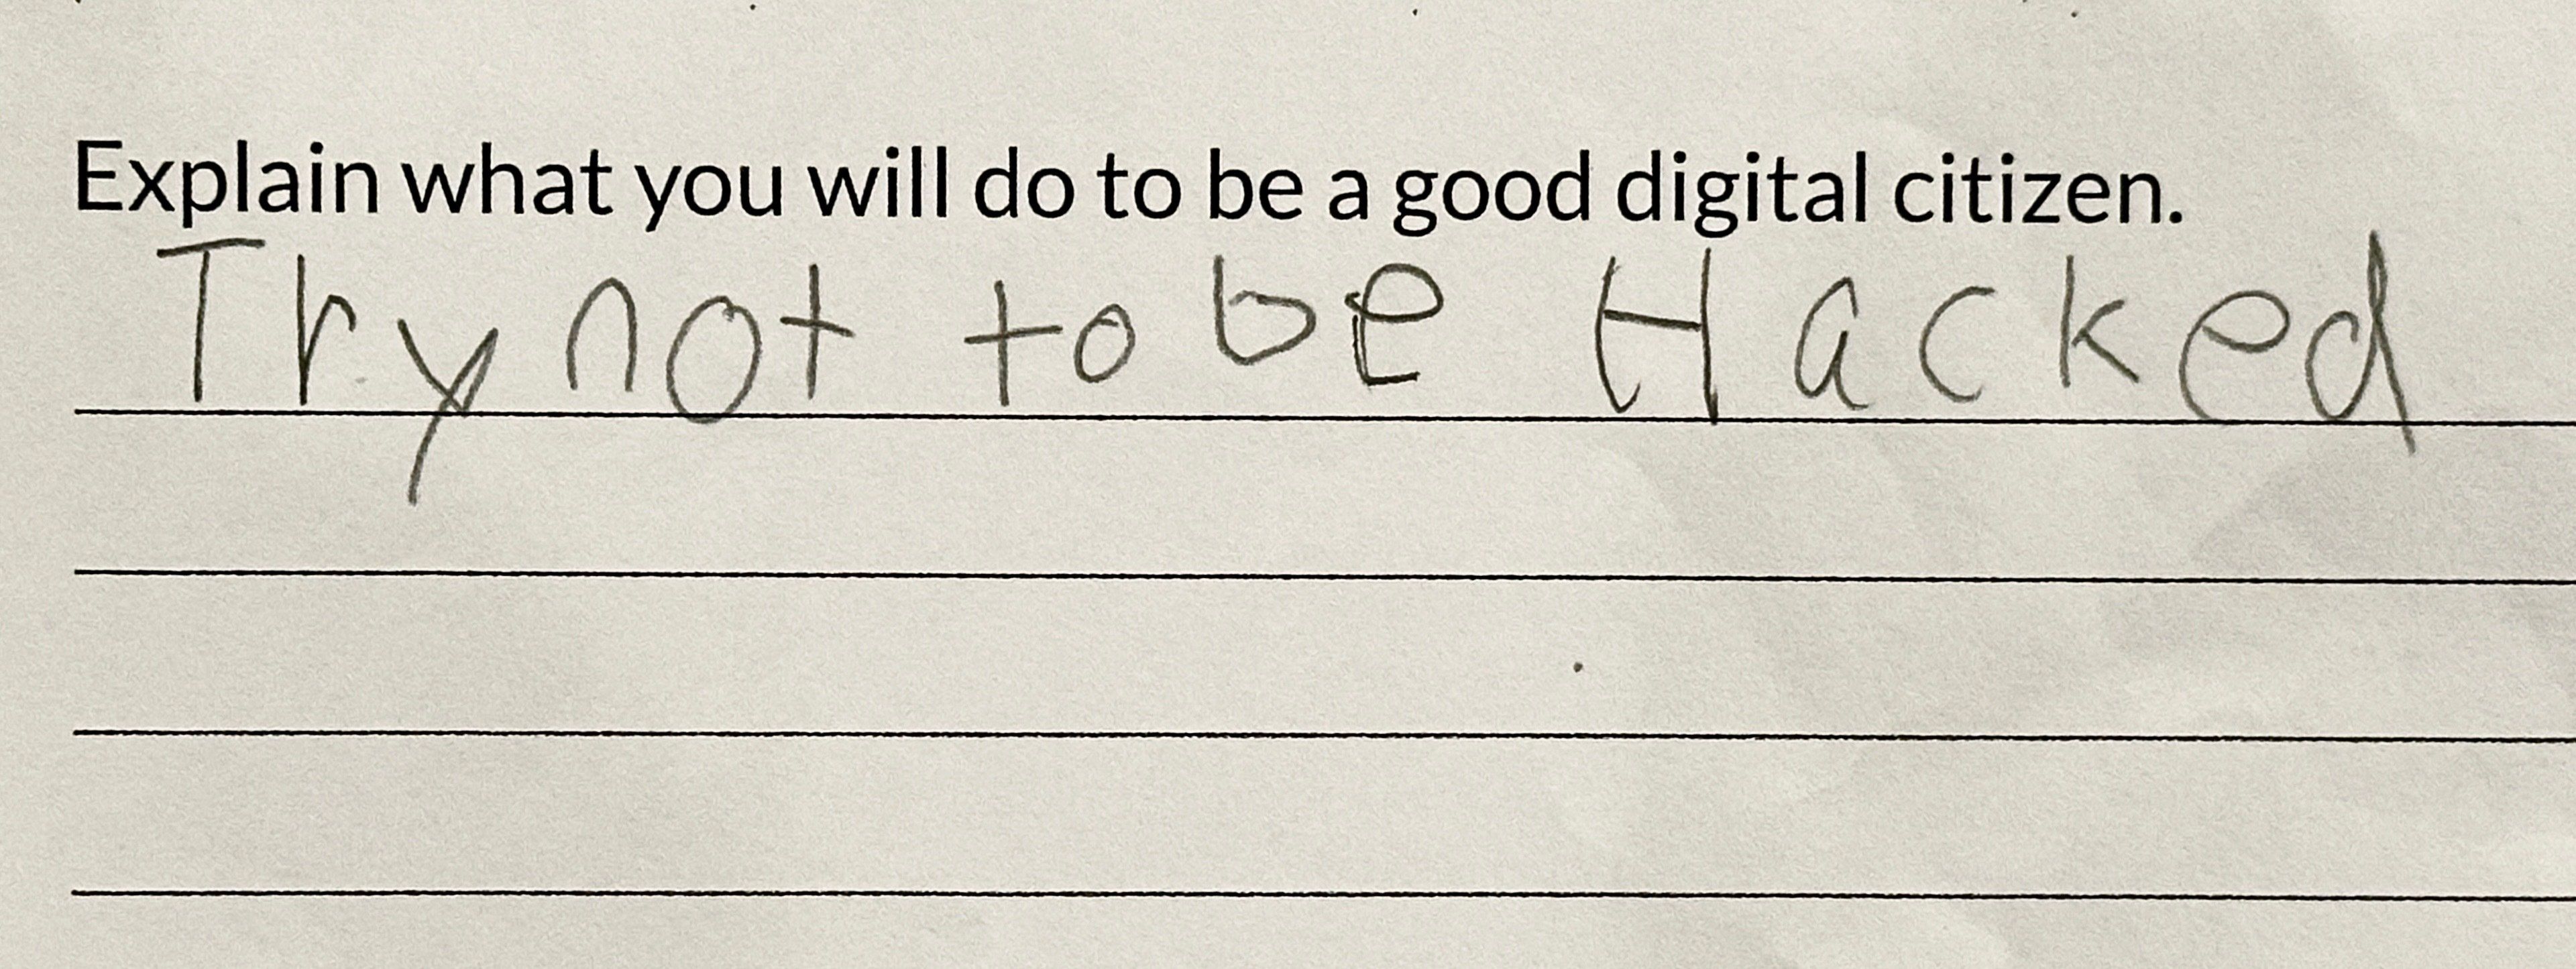 Explain what you will do to be a good digital citizen.
Try not to be Hacked